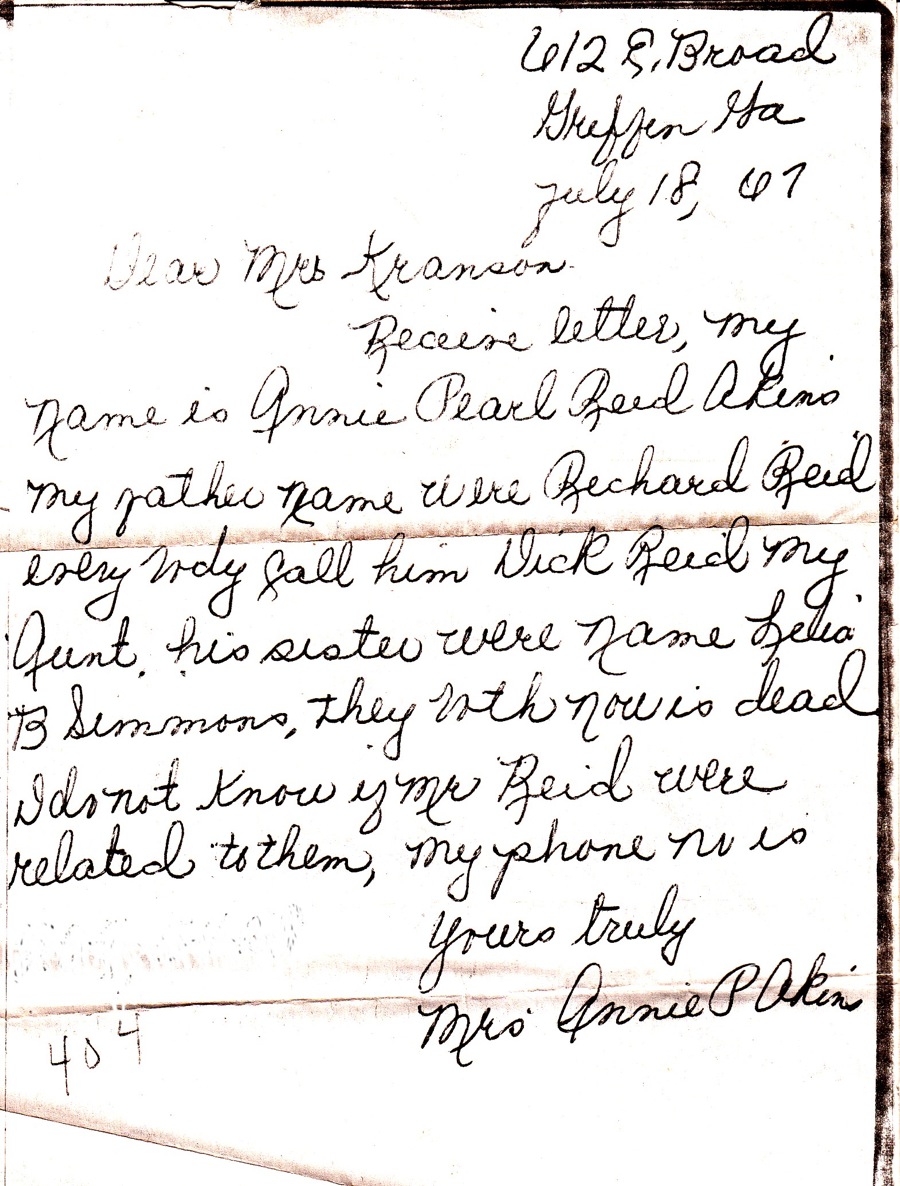 612 E. Broad
Griffin Ga
July 18, 67
Dear Mrs Kranson
Receive letter, my
name is Annie Pearl Reid Akins
my father name were Richard Reid
every body call him Dick Reid my
Aunt. his sister were name Lelia
B Simmons, they both now is dead
I do not know if Mr Reid were
related to them, my phone no is
yours truly
Mrs Annie P Akin
404